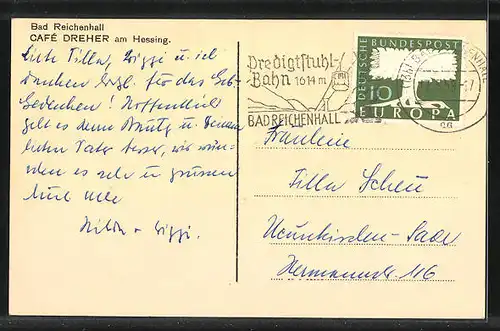 Bad Reichenhall
CAFÉ DREHER am Hessing.
Liebe Tilla, Siggi u. ich
danken Dir für das
Gedenken! Hoffentlich
geht es dem Brutz u. Deinem
lieben Vater besser, wir
es sehr u. grüssen
Hilda + Siggi.
Predigtstuhl-
Bahn 1614m
BAD REICHENHALL
DEUTSCHE BUNDESPOST
10
EUROPA
Fräulein
Tilla Scheu
Neunkirchen-Saar
Hermannstr. 116